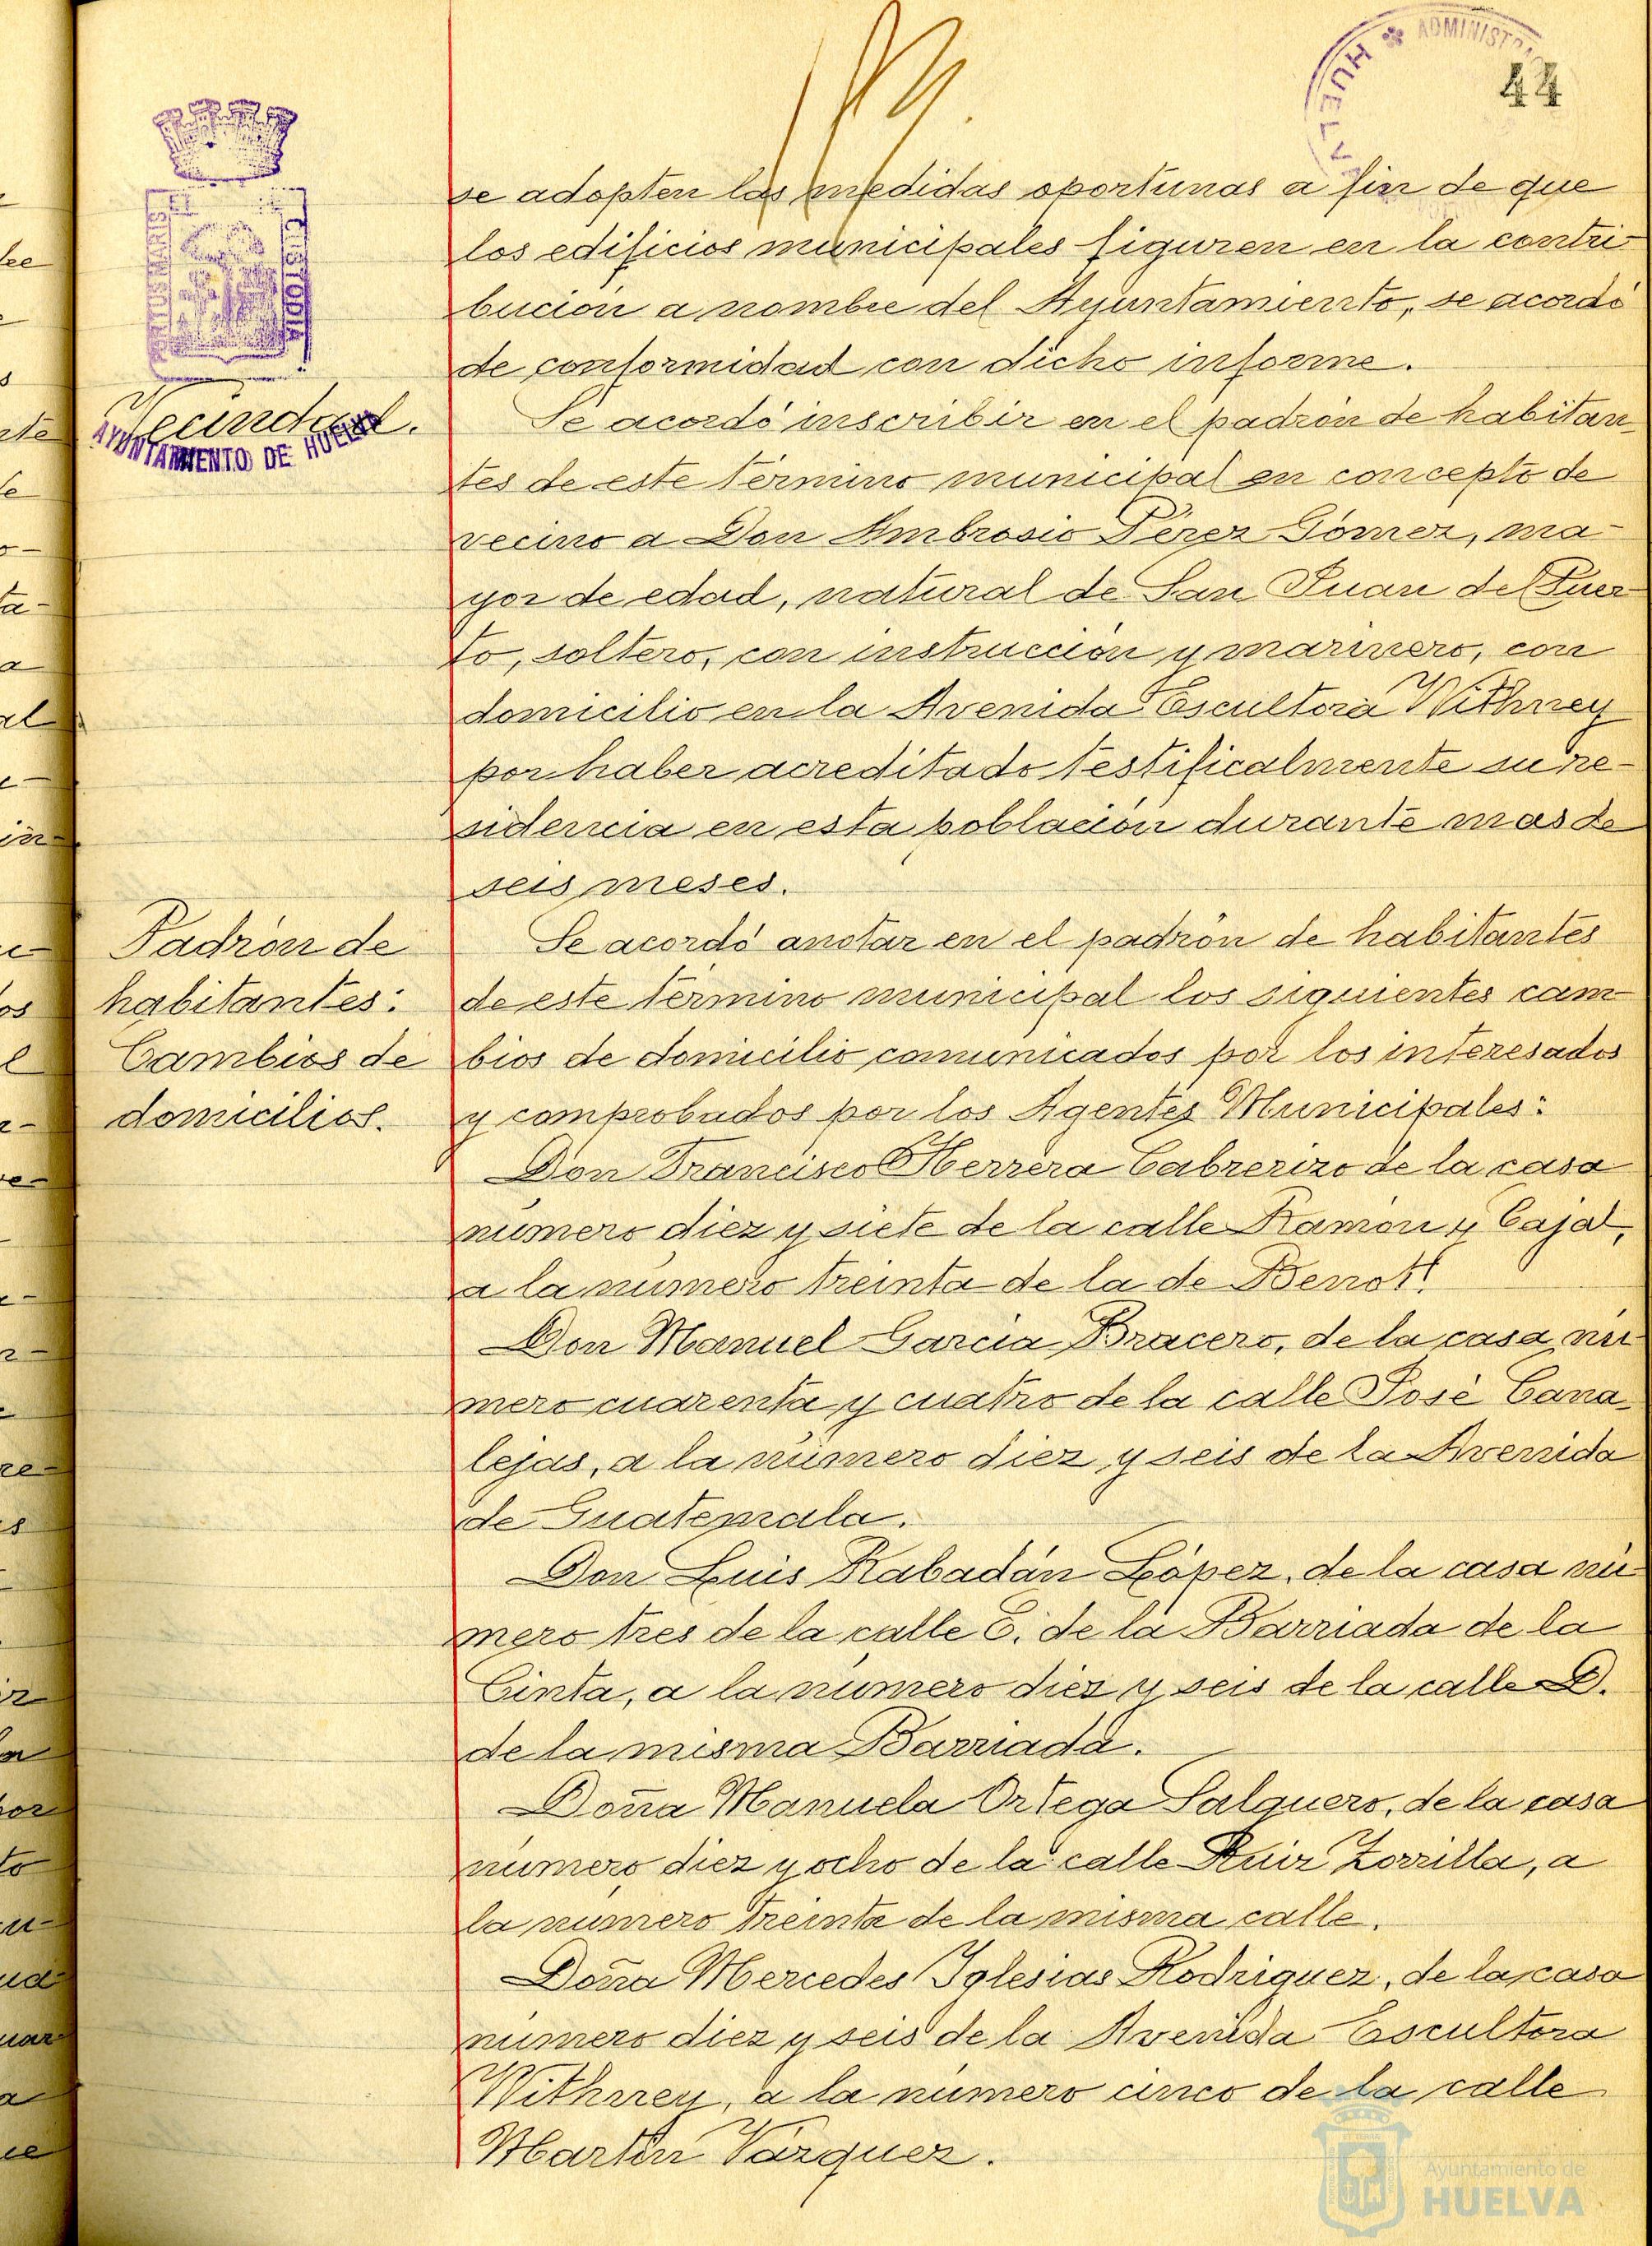 ADMINIST
HUELVA
44
PORTUS MARIS
ET
CUSTODIA
AYUNTAMIENTO DE HUELVA
se adopten las medidas oportunas a fin de que
los edificios municipales figuren en la contri-
bución a nombre del Ayuntamiento, se acordó
de conformidad con dicho informe.
Vecindad.
Se acordó inscribir en el padrón de habitan-
tes de este término municipal en concepto de
vecino a Don Ambrosio Pérez Gómez, ma-
yor de edad, natural de San Juan del Puer-
to, soltero, con instrucción y marinero, con
domicilio en la Avenida Escultora Withney
por haber acreditado testificalmente su re-
sidencia en esta población durante mas de
seis meses.
Padrón de
habitantes:
Cambios de
domicilios.
Se acordó anotar en el padrón de habitantes
de este término municipal los siguientes cam-
bios de domicilio comunicados por los interesados
y comprobados por los Agentes Municipales:
Don Francisco Herrera Cabrerizo de la casa
número diez y siete de la calle Ramón y Cajal,
a la número treinta de la de Benot.
Don Manuel García Bracero, de la casa nú-
mero cuarenta y cuatro de la calle José Cana-
lejas, a la número diez y seis de la Avenida
de Guatemala.
Don Luis Rabadán López, de la casa nú-
mero tres de la calle C. de la Barriada de la
Cinta, a la número diez y seis de la calle D.
de la misma Barriada.
Doña Manuela Ortega Salguero, de la casa
número diez y ocho de la calle Ruiz Zorrilla, a
la número treinta de la misma calle.
Doña Mercedes Iglesias Rodriguez, de la casa
número diez y seis de la Avenida Escultora
Withney, a la número cinco de la calle
Martín Vázquez.
Ayuntamiento de
HUELVA